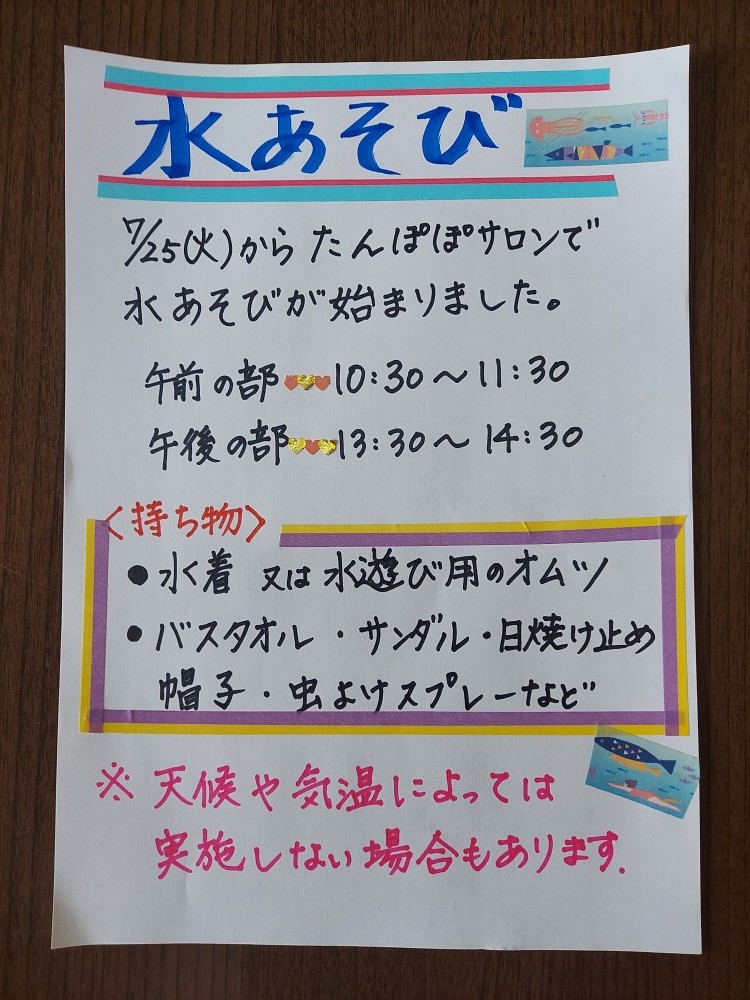 水あそび
7/25(火)から たんぽぽサロンで
水あそびが始まりました。
午前の部 10:30～11:30
午後の部 13:30～14:30
〈持ち物〉
● 水着 又は 水遊び用のオムツ
● バスタオル・サンダル・日焼け止め
帽子・虫よけスプレーなど
※ 天候や気温によっては
実施しない場合もあります.